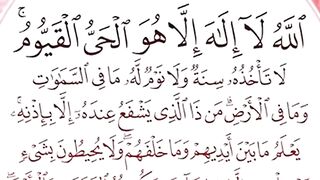 ٱللَّهُ لَآ إِلَٰهَ إِلَّا هُوَ ٱلْحَىُّ ٱلْقَيُّومُ ۚ
لَا تَأْخُذُهُۥ سِنَةٌ وَلَا نَوْمٌ لَّهُۥ مَا فِى ٱلسَّمَٰوَٰتِ
وَمَا فِى ٱلْأَرْضِ ۗ مَن ذَا ٱلَّذِى يَشْفَعُ عِندَهُۥٓ إِلَّا بِإِذْنِهِۦ ۚ
يَعْلَمُ مَا بَيْنَ أَيْدِيهِمْ وَمَا خَلْفَهُمْ ۖ وَلَا يُحِيطُونَ بِشَىْءٍ